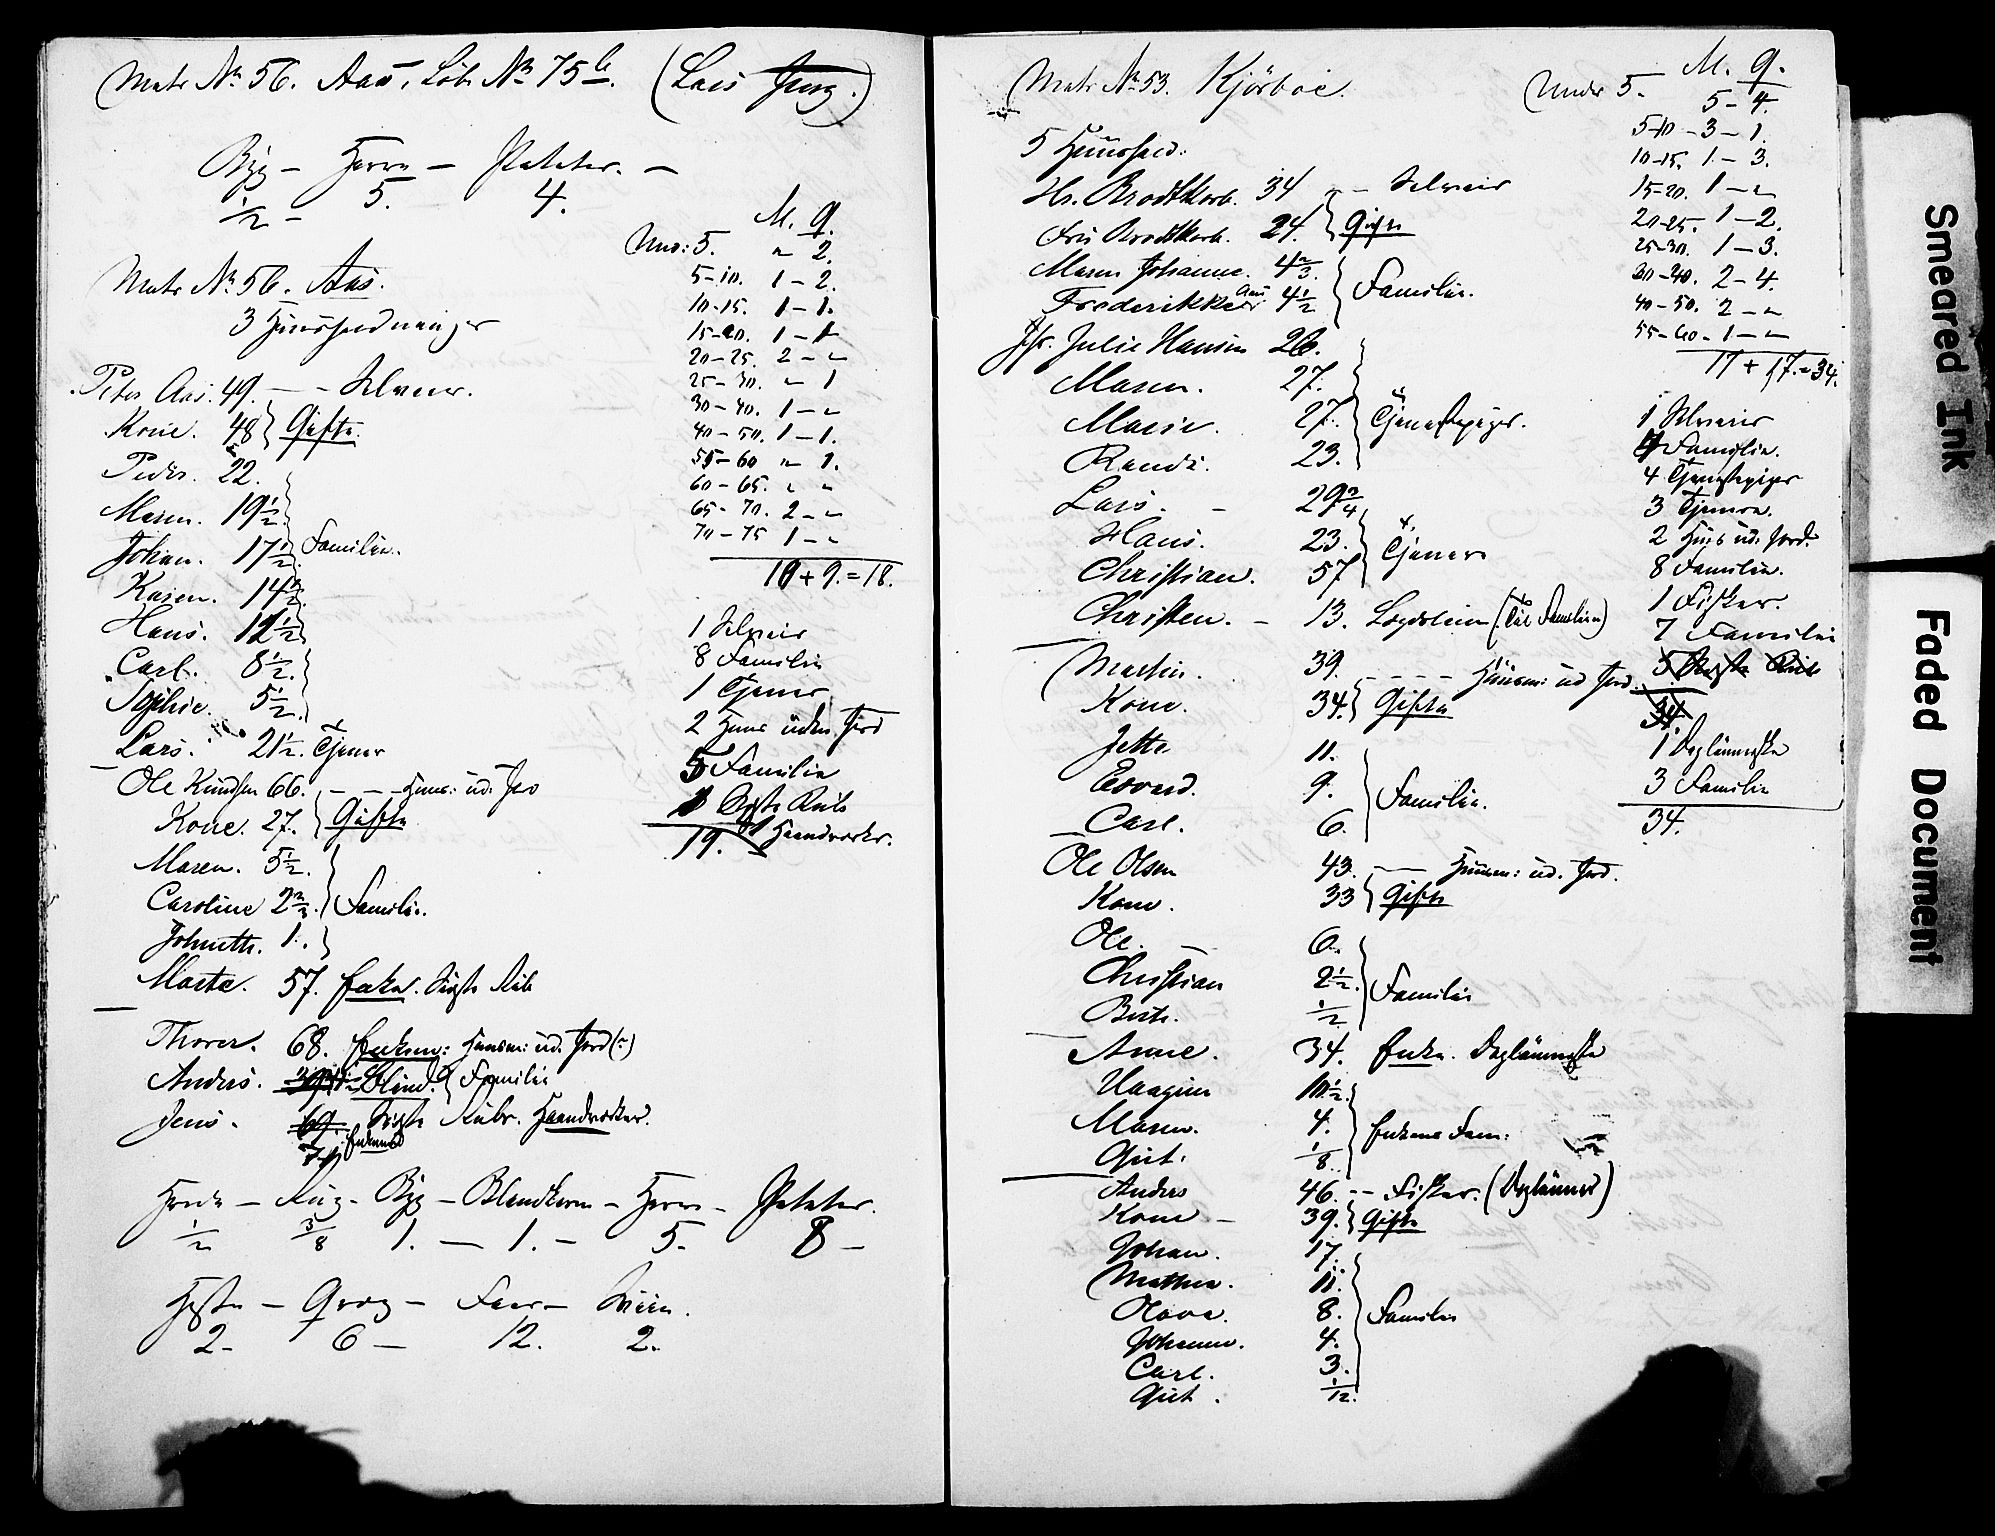 Matr № 56. Aas, Löb. № 75 b. (Lars Jung.)
Byg – Havre – Poteter. –
1/2 – 5. 4.
M. Q.
Und: 5. " 2.
5–10. 1 – 2.
10–15. 1 – 1.
15–20. 1 – 1
20–25. 2 – "
25–30. " 1
30–40. 1 – "
40–50. 1 – 1.
55–60 " 1.
60–65. " "
65–70. 2 – "
70–75 1 – "
10 + 9. = 18.
1 Selveier
8 Familie
1 Tjener
2 Huus uden Jord
5 Familie
Sygte Rub
1 Haandverkr.
19.
Matr № 56. Aas.
3 Huusholdninger
Peter Aas. 49. – – Selveier.
Kone. 48 Gifte.
Peder. 22.
Maren. 19 1/2.
Johan. 17 1/2. Familie.
Karen. 14 1/2.
Hans. 12 1/2
Carl. 8 1/2.
Sophie. 5 1/2.
Lars. 21 1/2. Tjener
Ole Knudsen 66. – – – Huusm: ud. Jord
Kone. 27. Gifte
Maren. 5 1/2.
Caroline 2 2/3. Familie.
Johnette. 1.
Marte. 57. Enke.
Thorer. 68. Enkem: Huusm: ud. Jord (:)
Anders. Blind. Familie
Jens. 69. Haandverker.
71. Enkemd
Hvede – Rug – Byg – Blandkorn – Havre – Poteter.
1/2 3/8 1. – 1. – 5. 8 –
Heste – Qvæg – Faar – Sviin.
2 – 6 – 12. 2.
Matr № 53. Kjörboe.
M. Q.
Under 5. 5 – 4.
5–10 – 3 – 1.
10–15. 1 – 3.
15–20. 1 – "
20–25. 1 – 2.
25–30. 1 – 3.
30–40. 2 – 4.
40–50. 2 – "
55–60 – 1 – "
17 + 17. = 34.
1 Selveier
4 Familie.
4 Tjenestepiger
3 Tjenere.
2 Huus ud. Jord.
8 Familie.
1 Fisker.
7 Familie
34.
1 Daglönnerske
3 Familie
34.
5 Huushold:
Hr. Brodtkorb. 34 – – Selveier
Fru Brodtkorb. 24. Gifte
Maren Johanne. 4 2/3.
Frederikke 4 1/2 Familie.
Jfr. Julie Hansen 26.
Maren. 27.
Marie. 27. Tjenestepiger.
Randi. 23.
Lars. – 29 3/4
Hans. 23. Tjenere
Christian. 57
Christen. – 13. Logerende (Til Familien)
Martin. 39. – – – – Huusm: ud Jord.
Kone. 34. Gifte
Jette. 11.
Edvard. 9. Familie.
Carl. 6.
Ole Olsen 43. – – Huusm: ud. Jord.
Kone. 33 Gifte
Ole. 6.
Christian 2 1/2. Familie
Berte. 1/2
Anne. 34. Enke. Daglönnerske
Haagine 10 1/2.
Maren. 4. Enkens Fam:
Gut. 1/8.
Anders 46. – – Fisker. (Daglönner)
Kone – 39. Gifte
Johan. 17.
Mathea. 11.
Olava. 8. Familie
Johanne. 4.
Carl. 3.
Gut. 1/12.
Smeared Ink
Faded Document